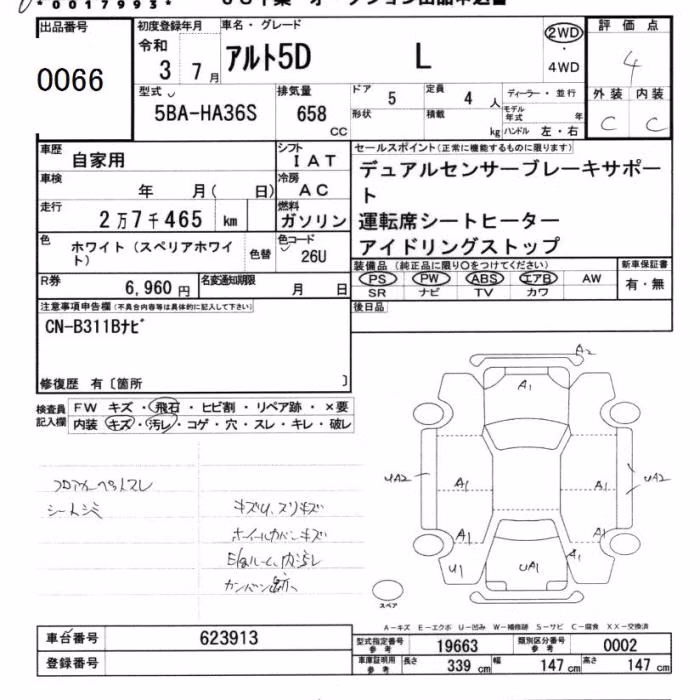 *0017993*
出品番号 初度登録年月 車名・グレード 評価点
0066 令和 3 7月 アルト5D L 2WD・4WD 4
型式 排気量 ドア 5 定員 4人 ディーラー・並行 外装 内装
5BA-HA36S 658 CC 形状 積載 kg モデル年式 年 ハンドル 左・右 C C
車歴 自家用 シフト IAT セールスポイント(正常に機能するものに限ります)
車検 年 月( 日) 冷房 AC デュアルセンサーブレーキサポー
ト
走行 2万7千465 km 燃料 ガソリン 運転席シートヒーター
色 ホワイト(スペリアホワイ
ト) 色替 色コード 26U アイドリングストップ
装備品(純正品に限り○をつけてください) 新車保証書
R券 6,960円 名変通知期限 月 日 PS PW ABS エアB AW 有・無
SR ナビ TV カワ
注意事項申告欄(不具合内容等は具体的に記入して下さい) 後日品
CN-B311Bナビ
修復歴 有〔箇所 〕
検査員 FW キズ・飛石・ヒビ割・リペア跡・×要
記入欄 内装 キズ・汚レ・コゲ・穴・スレ・キレ・破レ
フロアカーペットスレ
シートシミ
キズU、スリキズ
ホイールカバーキズ
A2
A1
UA2 A1 A1 UA2
A1 A1 A1
U1 UA1
スペア
A-キズ E-エクボ U-凹み W-補修跡 S-サビ C-腐食 XX-交換済
車台番号 623913 型式指定番号 参考 19663 類別区分番号 参考 0002
登録番号 車庫証明用 参考 長さ 339cm 幅 147cm 高さ 147cm